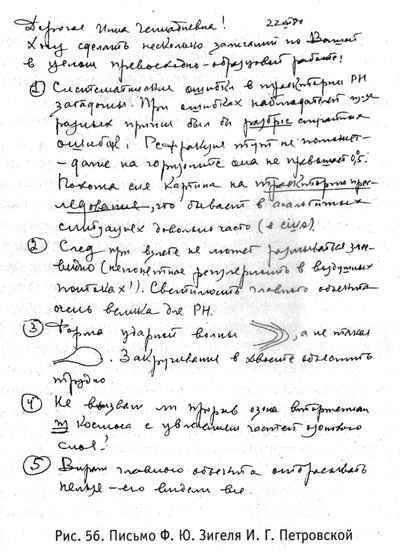 Дорогая Инна Геннадиевна!
22
Хочу сделать несколько замечаний по Вашей
в целом превосходно-образцовой работе:
① Систематические ошибки в траектории РН
загадочны. При ошибках наблюдателей
разных причин был бы разброс
ошибок! Рефракция тут не поможет –
– даже на горизонте она не превышает 0,5°.
Похожа сия картина на траекторию прес-
ледования, что бывает в аналогичных
ситуациях довольно часто (в США).
② След при взлете не может
(непонятная в воздушных
потоках!). Светимость главного объекта
очень велика для РН.
③ Форма ударной волны , а не такая
. Закручивание в хвосте объяснить
трудно
④ Не вызван ли прорыв озона вторжением
из космоса с увлечением частей озонового
слоя?
⑤ главного объекта отбрасывать
нельзя – его видели все.
Рис. 56. Письмо Ф. Ю. Зигеля И. Г. Петровской